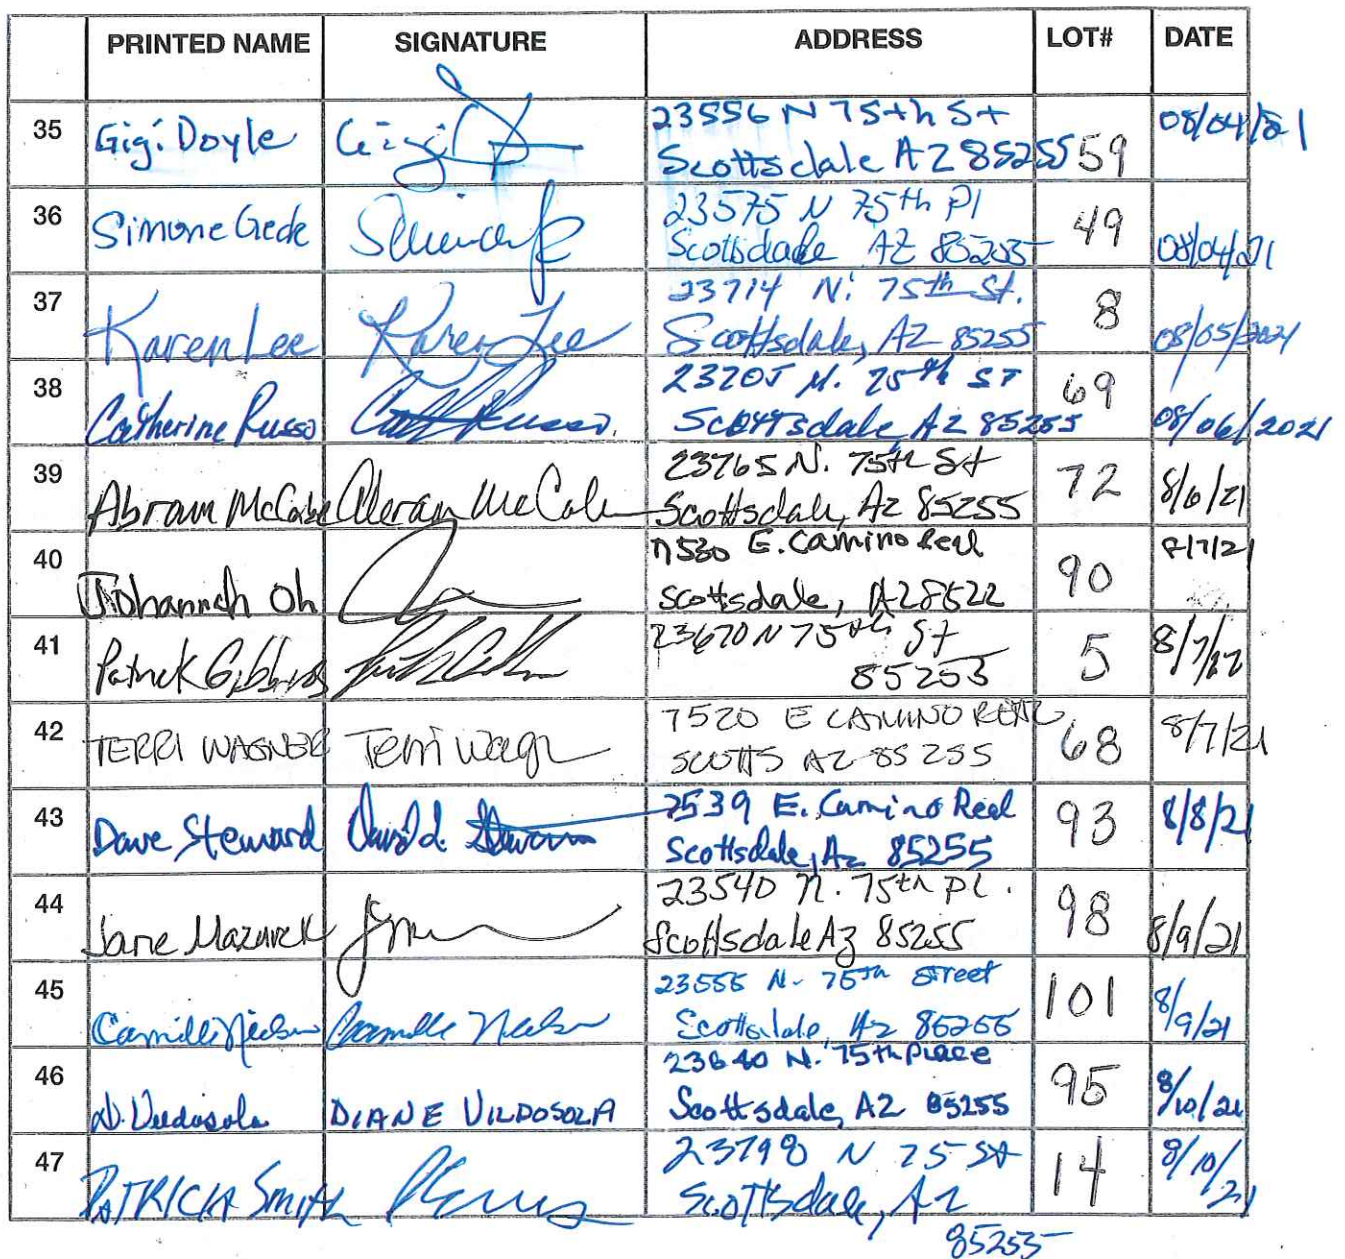 PRINTED NAME SIGNATURE ADDRESS LOT# DATE
35 Gigi Doyle Gigi 23556 N 75th St
Scottsdale AZ 85255 59 08/04/21
36 Simone Gede 23575 N 75th Pl
Scottsdale AZ 85255 49 08/04/21
37 Karen Lee Karen Lee 23714 N. 75th St.
Scottsdale, AZ 85255 8 08/05/2021
38 Catherine Russo Russo 23705 N. 75th ST
Scottsdale AZ 85255 69 08/06/2021
39 Abram McCabe Abram McCabe 23765 N. 75th St
Scottsdale, Az 85255 72 8/6/21
40 Johannah Oh 7530 E. Camino Real
Scottsdale, AZ 8522 90 8/7/21
41 Patrick 23670 N 75th St
85253 5
42 TERRI WAGNER Terri Wagr 7520 E CAMINO REAL
SCOTTS AZ 85255 68 8/7/21
43 Dave Steward David 7539 E. Camino Real
Scottsdale, Az 85255 93 8/8/21
44 Jane Mazurek 23540 N. 75th Pl.
Scottsdale Az 85255 98 8/9/21
45 Camille Camille N. 75th Street
Scottsdale, Az 85255 101 8/9/21
46 D. Vildosola DIANE VILDOSOLA N. 75th Place
Scottsdale, AZ 85255 95 8/10/21
47 PATRICIA Smith 23798 N 75 St
Scottsdale, Az 14 8/10/21
85255